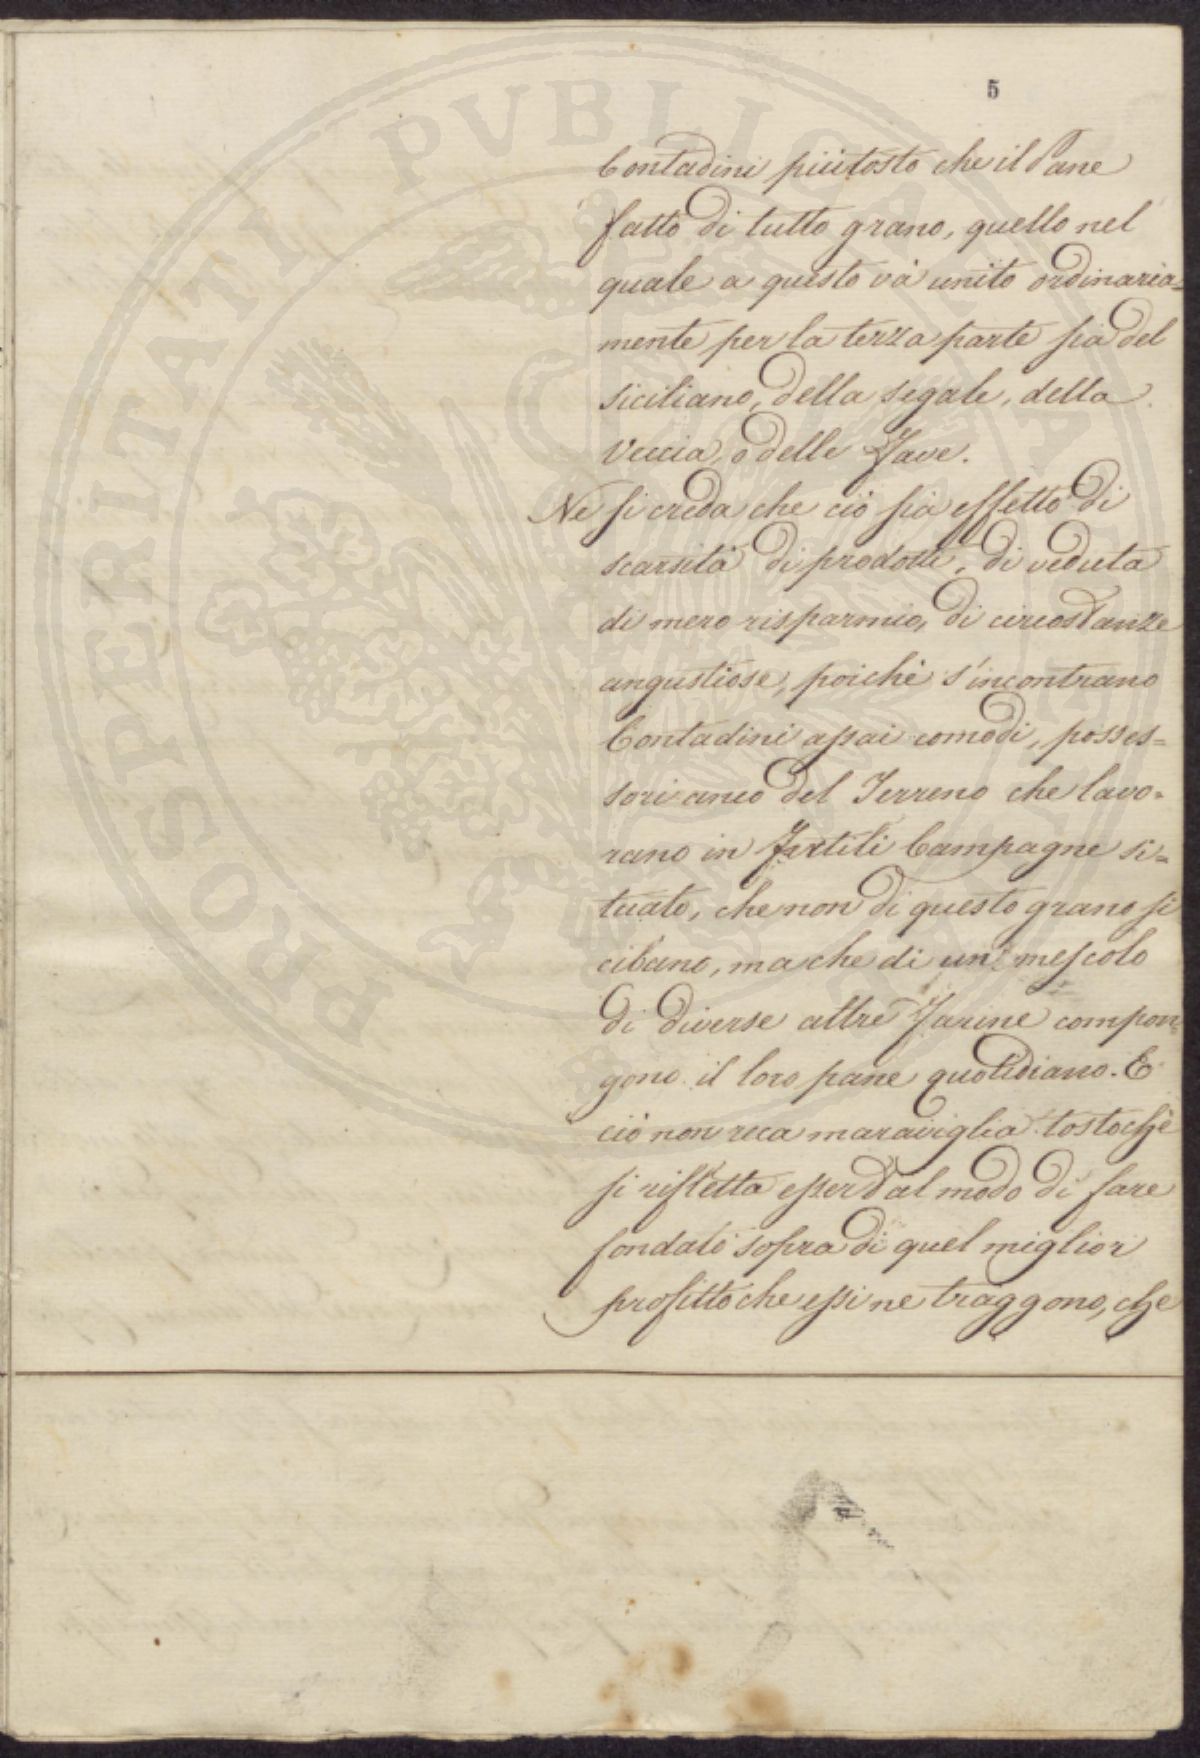 5
Contadini piùtosto che il Pane
fatto di tutto grano, quello nel
quale a questo và unito ordinaria=
mente per la terza parte sia del
siciliano, della segale, della
Veccia, o delle Fave.
Ne si creda che ciò sia effetto di
scarsità di prodotti, di veduta
di mero risparmio, di circostanze
angustiose, poichè s'incontrano
Contadini assai comodi, posses=
sori anco del Terreno che lavo=
rano in fertili Campagne si=
tuato, che non di questo grano si
cibano, ma che di un mescolo
di diverse altre Farine compon=
gono il loro pane quotidiano. E
ciò non reca maraviglia tostochè
si rifletta esser tal modo di fare
fondato sopra di quel miglior
profitto che essi ne traggono, che
PROSPERITATI PVBLICAE